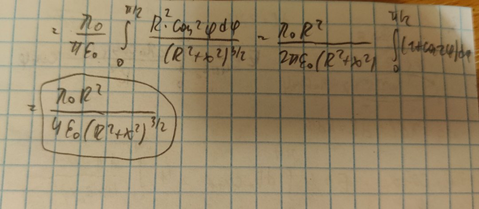 = π₀/(πε₀) ∫₀^{π/2} R²·cos²φdφ/(R²+x²)^{3/2} = π₀R²/(2πε₀(R²+x²)) ∫₀^{π/2} (1+cos2φ)dφ
= π₀R²/(4ε₀(R²+x²)^{3/2})